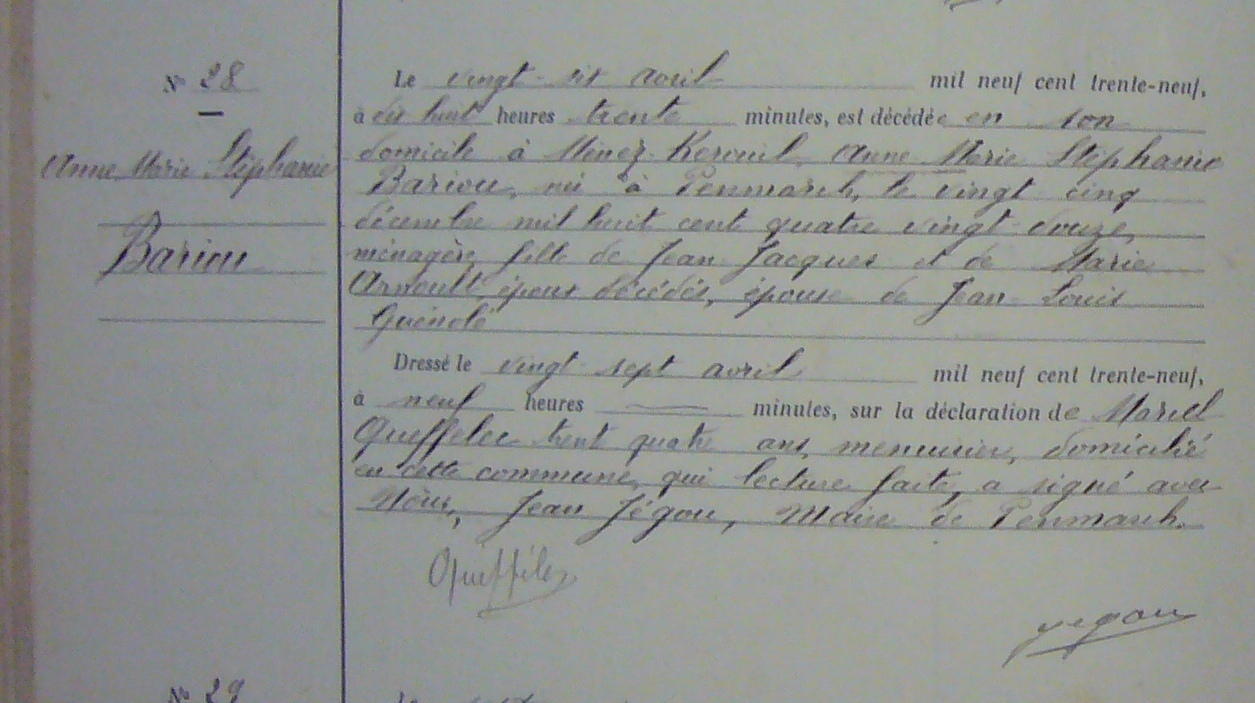 N° 28
Anne Marie Stéphanie
Bariou
Le vingt-six avril mil neuf cent trente-neuf,
à dix huit heures trente minutes, est décédée en son
domicile à Ménez-Kerouil, Anne Marie Stéphanie
Bariou, née à Penmarch, le vingt cinq
décembre mil huit cent quatre vingt-douze,
ménagère, fille de Jean Jacques et de Marie
Arnoult, époux décédés, épouse de Jean-Louis
Guénolé
Dressé le vingt-sept avril mil neuf cent trente-neuf,
à neuf heures minutes, sur la déclaration de Marcel
Queffelec trent quatre ans, menuisier, domicilié
en cette commune, qui lecture faite, a signé avec
Nous, Jean Jégou, Maire de Penmarch.
Queffélec
Jegou
N° 29